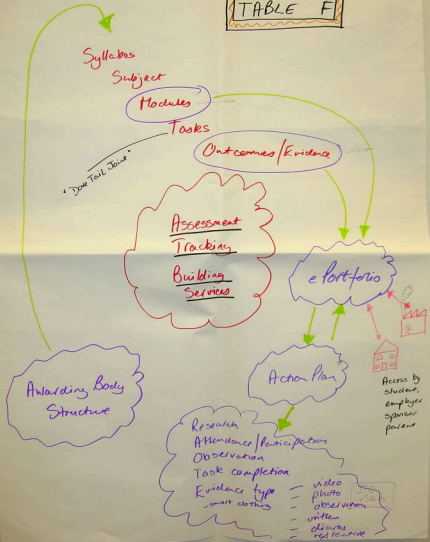 TABLE F
Syllabas
Subject
Modules
Tasks
Outcomes/Evidence
"Dove Tail Joint"
Assessment
Tracking
Building
Services
ePortfolio
Awarding Body
Structure
Action Plan
Access by
student,
employer
sponsor
parent
Research
Attendance/Participation
Observation
Task completion
Evidence type
- smart clothing
- video
- photo
- observation
- written
- diaries
- reflective